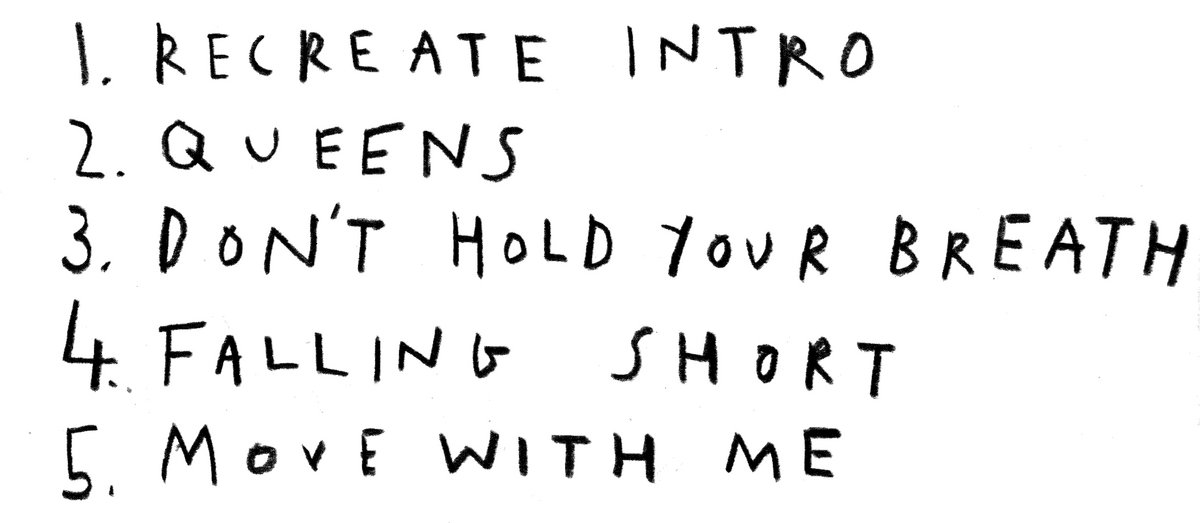 1. RECREATE INTRO
2. QUEENS
3. DON'T HOLD YOUR BREATH
4. FALLING SHORT
5. MOVE WITH ME